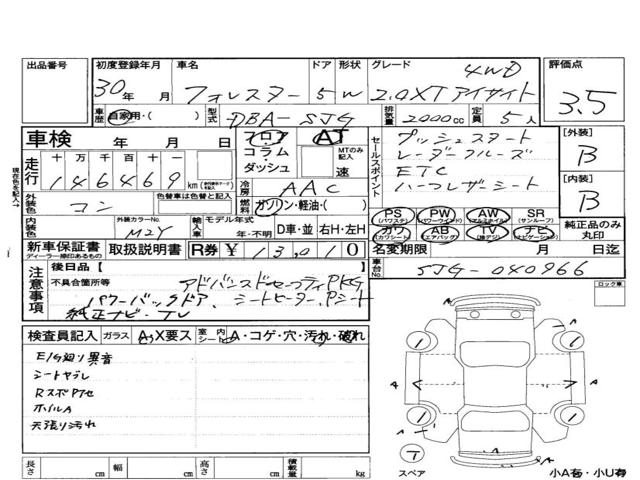 出品番号 初度登録年月 車名 ドア 形状 グレード 評価点
30年 月 フォレスター 5 W 2.0XTアイサイト 4WD 3.5
車歴 自家用・( ) 型式 DBA-SJG 排気量 2000cc 定員 5人
車検 年 月 日 フロア コラム・ダッシュ AT MTのみ記入 速
セールスポイント プッシュスタート
レーダークルーズ
ETC
ハーフレザーシート
[外装] B
[内装] B
走行 十 万 千 百 十 一
146469 km
冷房 AAC
燃料 ガソリン・軽油・( )
外装色 コン 色替車は色替と記入
内装色 外装カラーNo. M2Y 輸入車 モデル年式 年・不明 D車・並 右H・左H
PS (パワステ) PW (パワーウインド) AW (アルミホイル) SR (サンルーフ)
カワ (カワシート) AB (エアバッグ) TV (地デジ) ナビ (ナビゲーション)
純正品のみ丸印
新車保証書 ディーラー印あるもの 取扱説明書 R券 ¥13,010
名変期限 月 日迄
車台No. SJG-040966
注意事項 後日品[ ]
不具合箇所等 アドバンスドセーフティPKG
パワーバックドア、シートヒーター、Pシート
純正ナビ・TV
ロック車
検査員記入 ガラス A,X要ス 室内シート A・コゲ・穴・汚れ・破れ
E/G廻り異音
シートヤブレ
ホイルA
天張り汚れ
A A A A
スペア
長さ cm 幅 cm 高さ cm 積載量 kg
小A有・小U有
現在色を記入